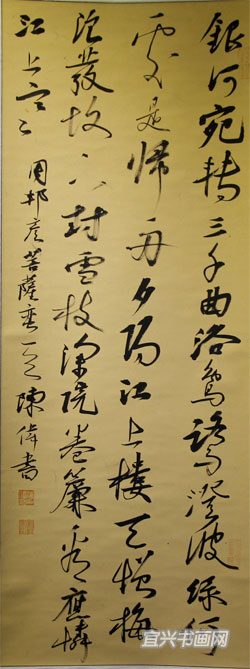 銀河宛轉三千曲浴鳧飛鷺澄波綠何
處是歸舟夕陽江上樓天憎梅
浪發故下封雪枝深院卷簾看應憐
江上寒
周邦彥菩薩蠻 陳偉書
宜兴书画网